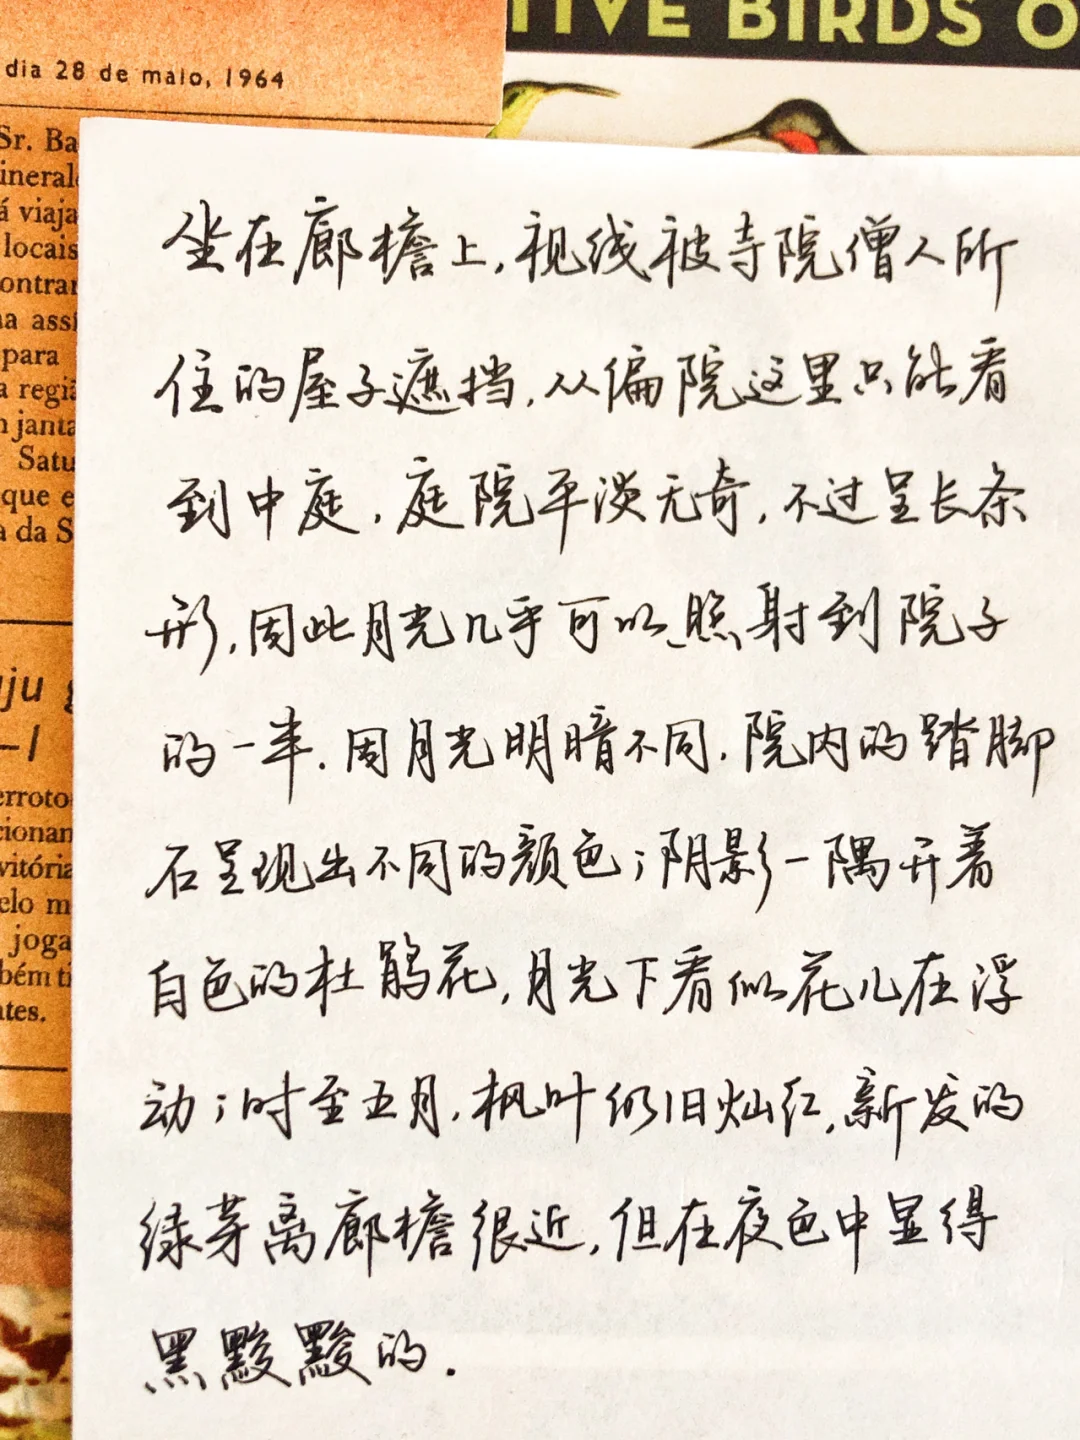 TIVE BIRDS O
dia 28 de maio, 1964
Sr. Ba
ineral
á viaja
locais
ontrar
na assi
para
a regiã
n janta
Satu
que e
a da S
uju g
-1
erroto
cionan
vitória
elo m
joga
bém ti
ates.
坐在廊檐上,视线被寺院僧人所
住的屋子遮挡,从偏院这里只能看
到中庭,庭院平淡无奇,不过呈长条
形,因此月光几乎可以照射到院子
的一半.因月光明暗不同,院内的踏脚
石呈现出不同的颜色;阴影一隅开着
白色的杜鹃花,月光下看似花儿在浮
动;时至五月,枫叶仍旧灿红,新发的
绿芽离廊檐很近,但在夜色中显得
黑黢黢的.